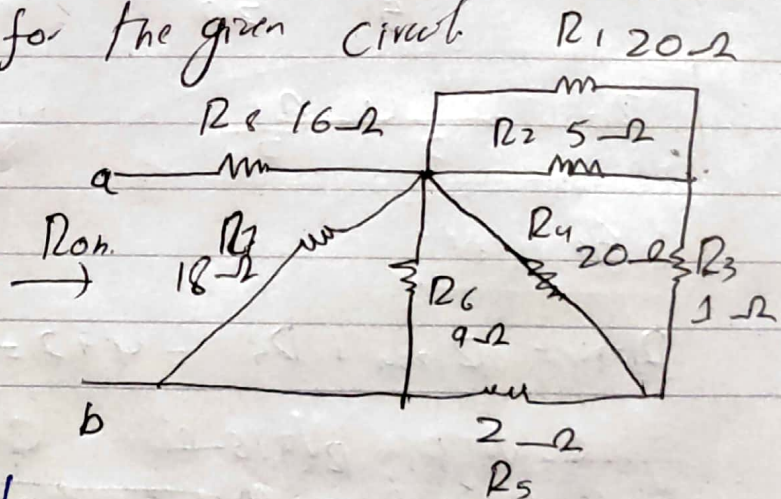 for the given Circuit
R1 20Ω
R8 16Ω
R2 5Ω
a
R7
18Ω
R4
20Ω
R3
1Ω
R6
9Ω
b
2Ω
R5